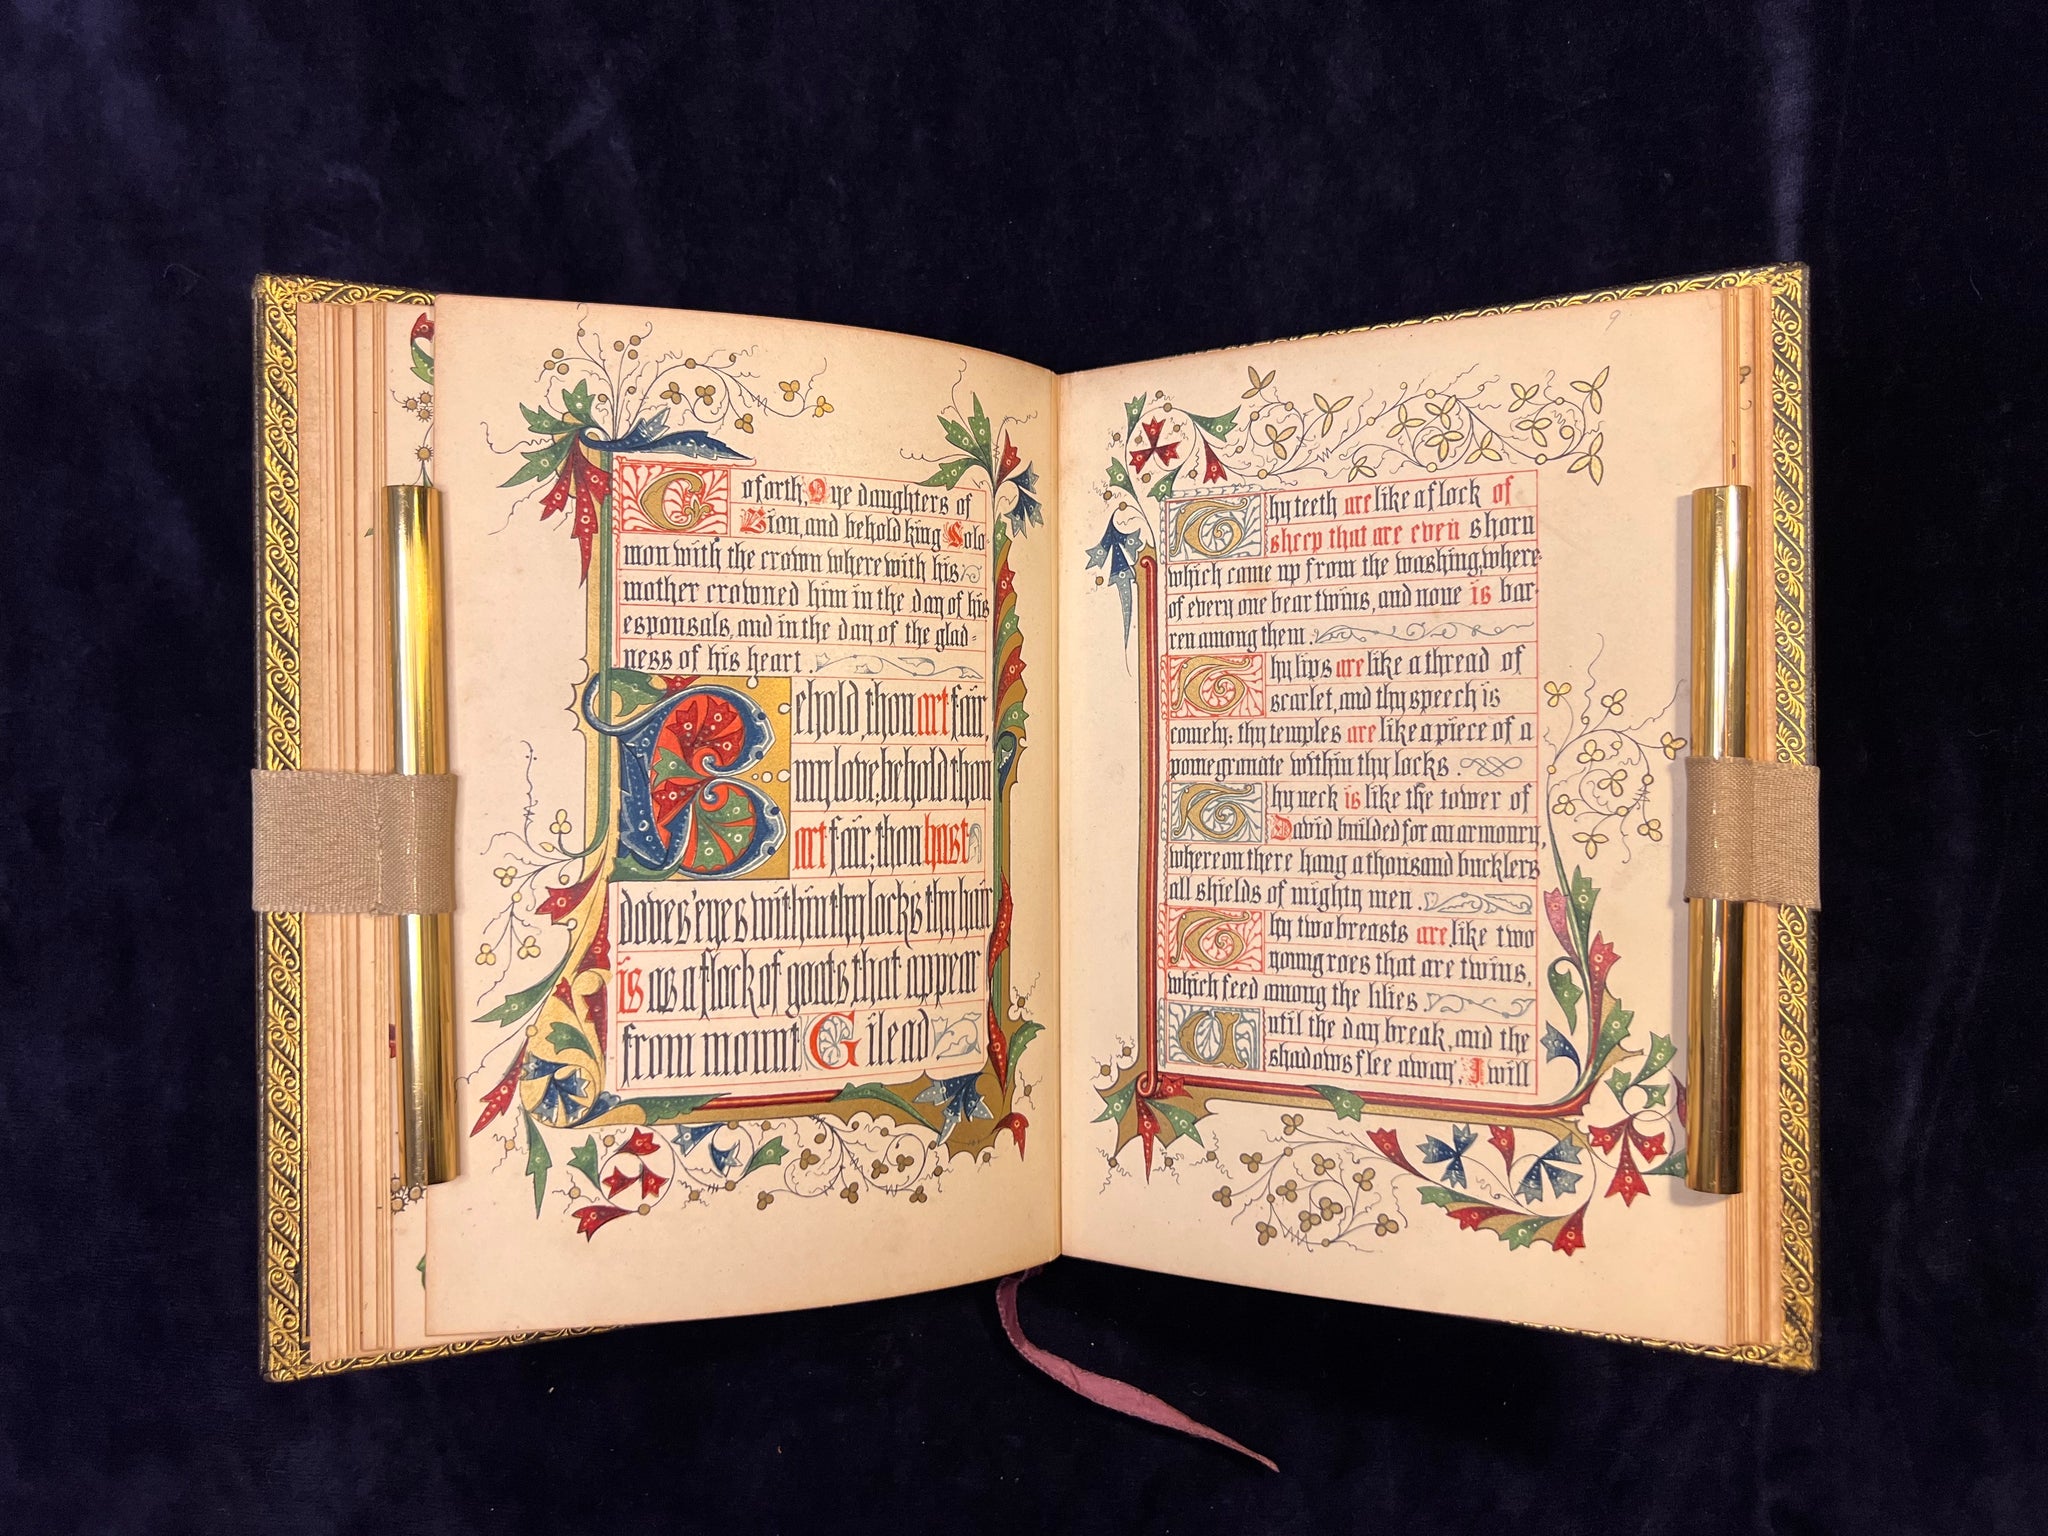 Go forth, O ye daughters of
Zion, and behold king Solo-
mon with the crown where with his
mother crowned him in the day of his
espousals, and in the day of the glad-
ness of his heart.
Behold, thou art fair,
my love; behold thou
art fair; thou hast
doves' eyes within thy locks thy hair
is as a flock of goats, that appear
from mount Gilead
9
Thy teeth are like a flock of
sheep that are even shorn
which came up from the washing, where-
of every one bear twins, and none is bar-
ren among them.
Thy lips are like a thread of
scarlet, and thy speech is
comely: thy temples are like a piece of a
pomegranate within thy locks.
Thy neck is like the tower of
David builded for an armoury,
whereon there hang a thousand bucklers
all shields of mighty men.
Thy two breasts are like two
young roes that are twins,
which feed among the lilies
Until the day break, and the
shadows flee away, I will